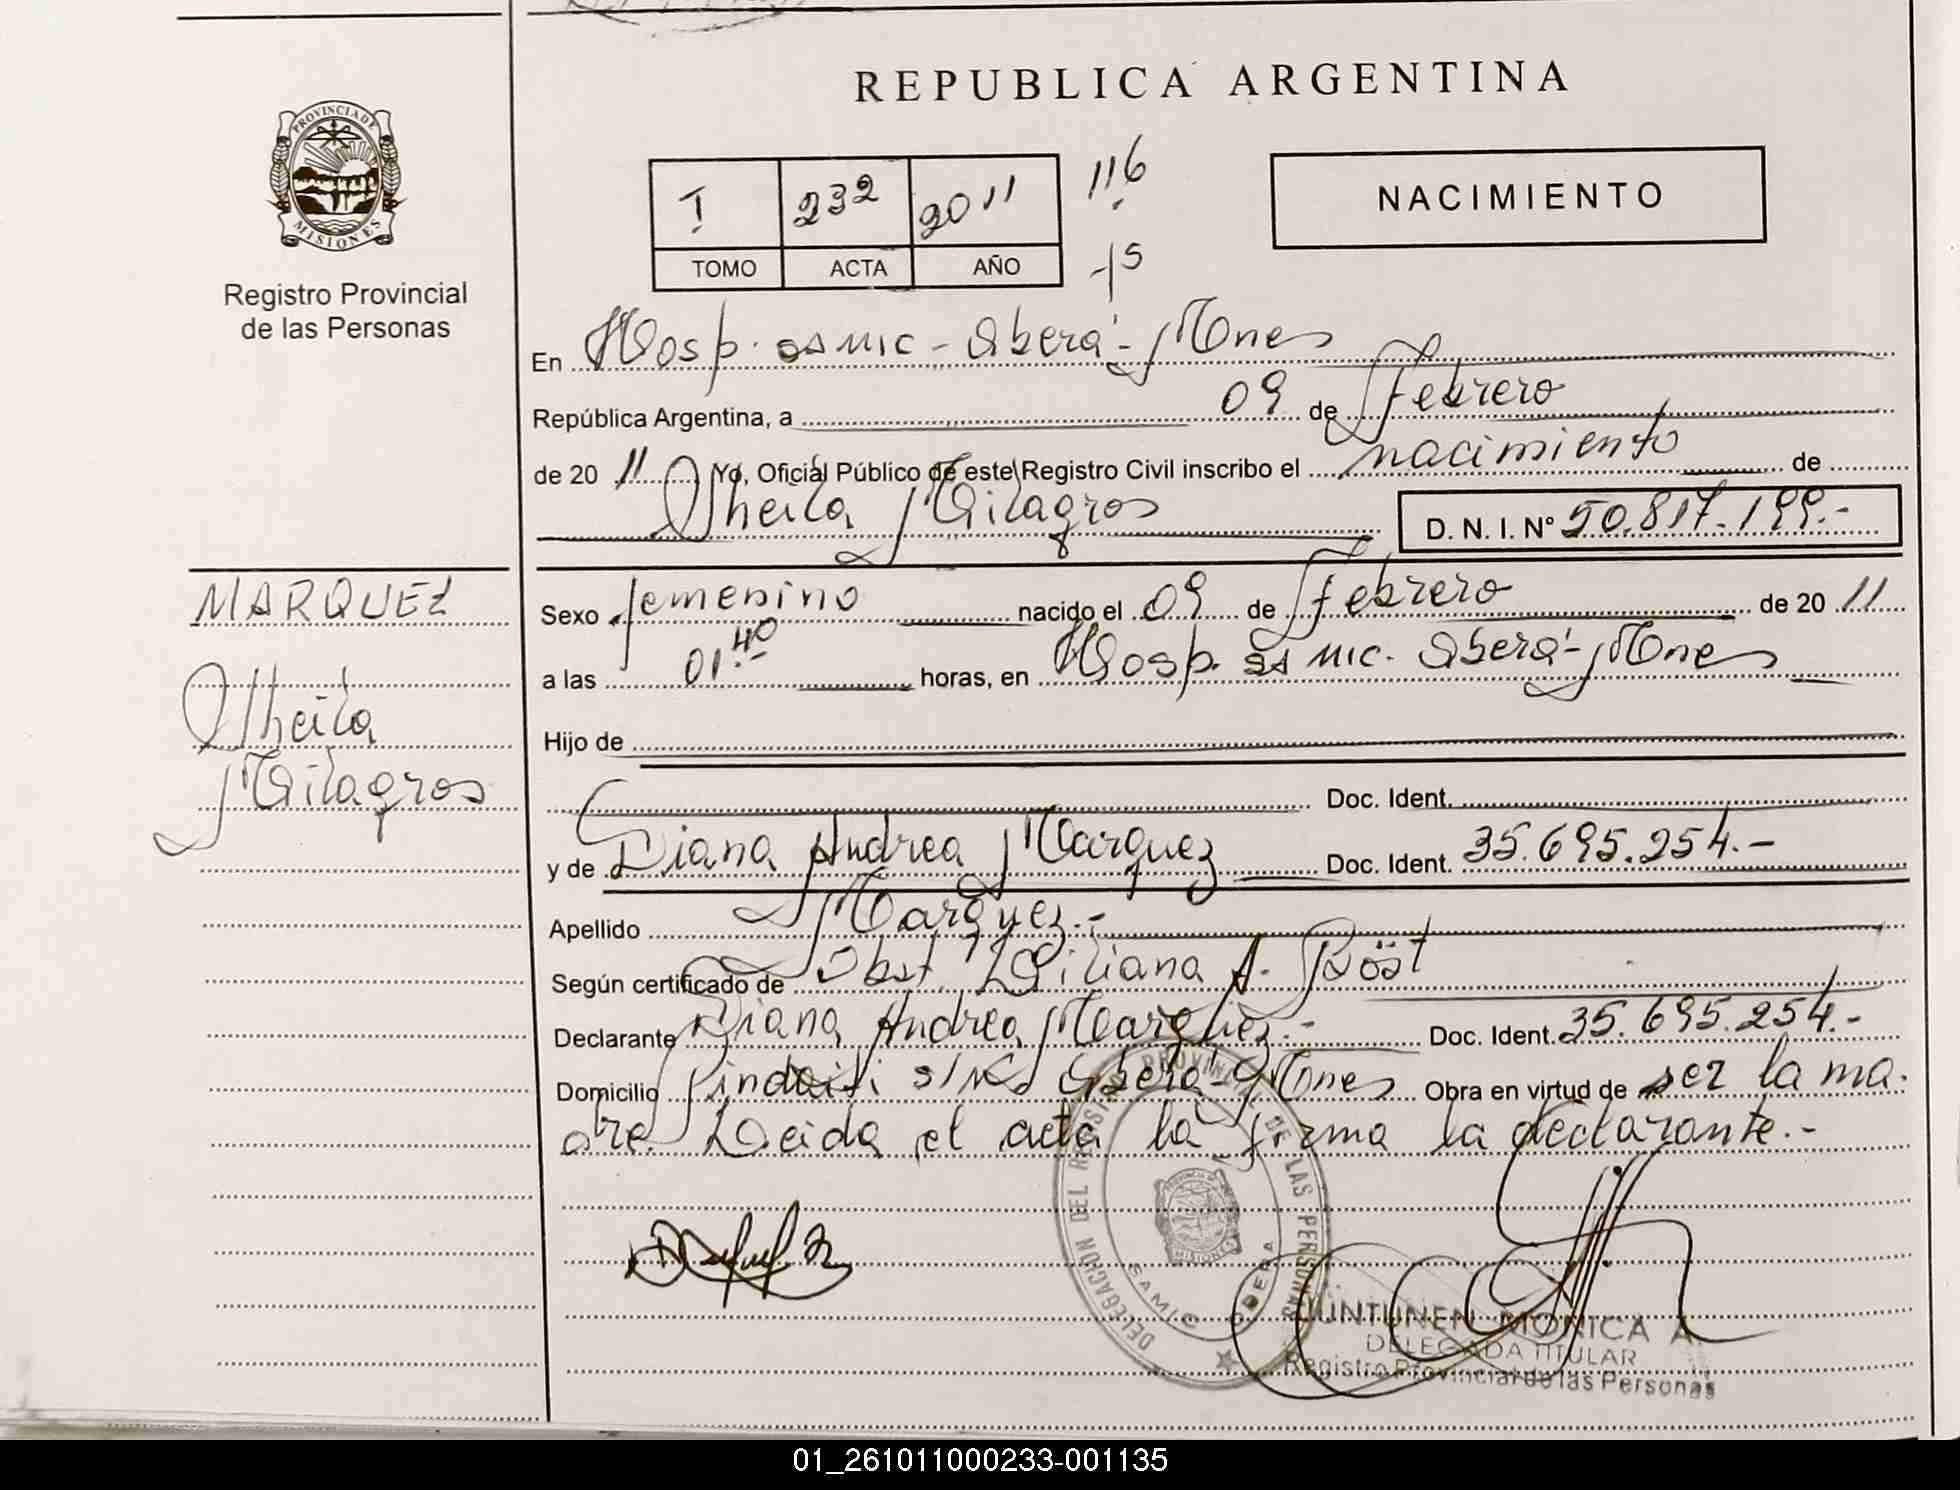 REPUBLICA ARGENTINA
PROVINCIA DE
MISIONES
Registro Provincial
de las Personas
I 232 2011 116
TOMO ACTA AÑO 15
NACIMIENTO
En Hosp. SAMIC - Oberá - Mnes
República Argentina, a 09 de Febrero
de 20 11 Yo, Oficial Público de este Registro Civil inscribo el nacimiento de
Sheila Milagros D. N. I. Nº 50.817.199.-
MARQUEZ
Sheila
Milagros
Sexo femenino nacido el 09 de Febrero de 20 11
a las 01.40 horas, en Hosp. SAMIC. Oberá - Mnes
Hijo de
Doc. Ident.
y de Diana Andrea Marquez Doc. Ident. 35.695.254.-
Apellido Marquez.-
Según certificado de Obst. Liliana A. Röst
Declarante Diana Andrea Marquez.- Doc. Ident. 35.695.254.-
Domicilio Pindaití S/Nº Oberá - Mnes Obra en virtud de ser la ma-
dre. Leida el acta la firma la declarante.-
DELEGACION DEL REGISTRO PROVINCIAL DE LAS PERSONAS
SAMIC OBERA
MISIONES
JUNTUNEN MONICA A.
DELEGADA TITULAR
Registro Provincial de las Personas
01_261011000233-001135